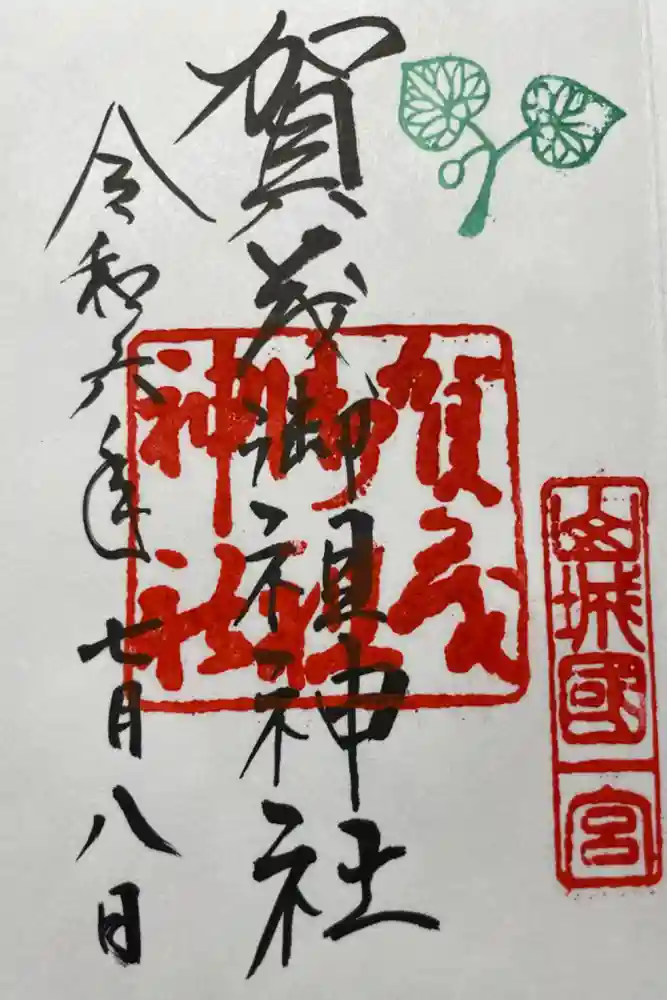 山城國一宮
賀茂御祖神社
賀茂
御祖
神社
令和六年七月八日